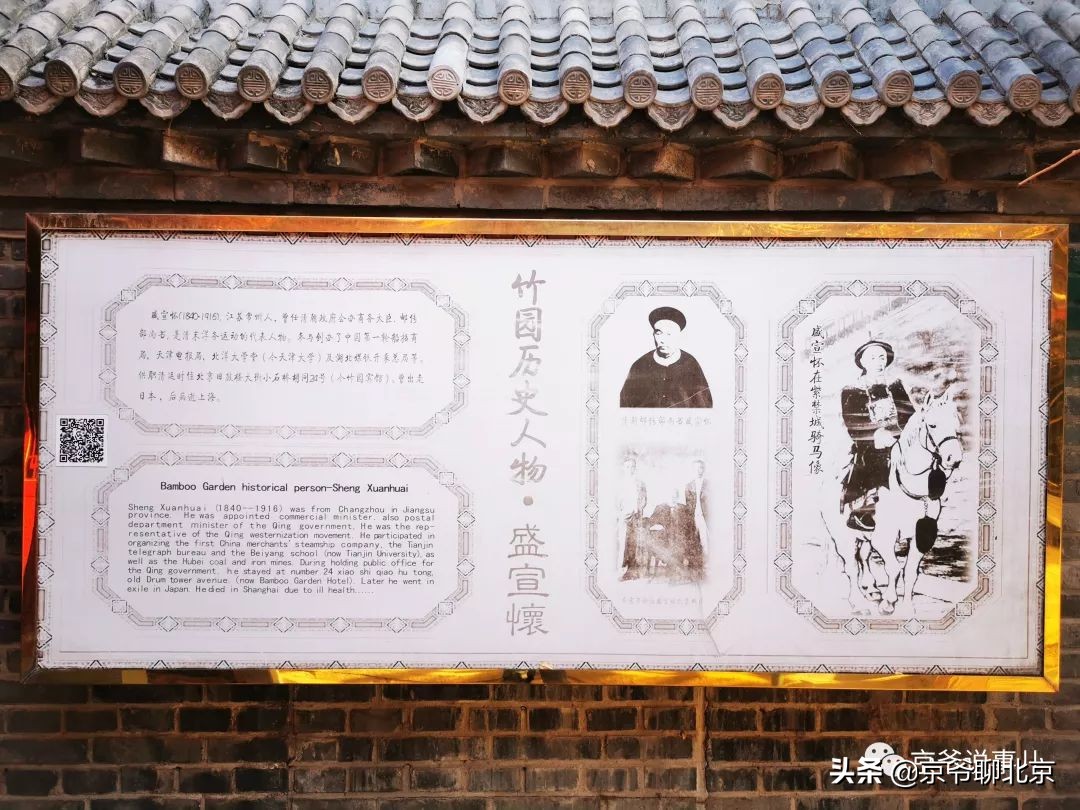 盛宣怀(1840-1916), 江苏常州人, 曾任清朝政府会办商务大臣, 邮传
部尚书, 是清末洋务运动的代表人物。参与创办了中国第一轮船招商
局, 天津电报局, 北洋大学堂(今天津大学)及湖北煤铁开采总局等。
供职清廷时住北京旧鼓楼大街小石桥胡同24号(今竹园宾馆), 曾出走
日本, 后病逝上海。
Bamboo Garden historical person-Sheng Xuanhuai
Sheng Xuanhuai (1840--1916) was from Changzhou in Jiangsu
province. He was appointed commercial minister, also postal
department minister of the Qing government. He was the rep-
resentative of the Qing westernization movement. He participated in
organizing the first China merchants' steamship company, the Tianjin
telegraph bureau and the Beiyang school (now Tianjin University), as
well as the Hubei coal and iron mines. During holding public office for
the Qing government, he stayed at number 24 xiao shi qiao hu tong,
old Drum tower avenue. (now Bamboo Garden Hotel). Later he went in
exile in Japan. He died in Shanghai due to ill health......
竹园历史人物·盛宣懷
清朝邮传部尚书盛宣怀
盛宣怀在紫禁城骑马像
京爷说青山
头条@京爷聊北京